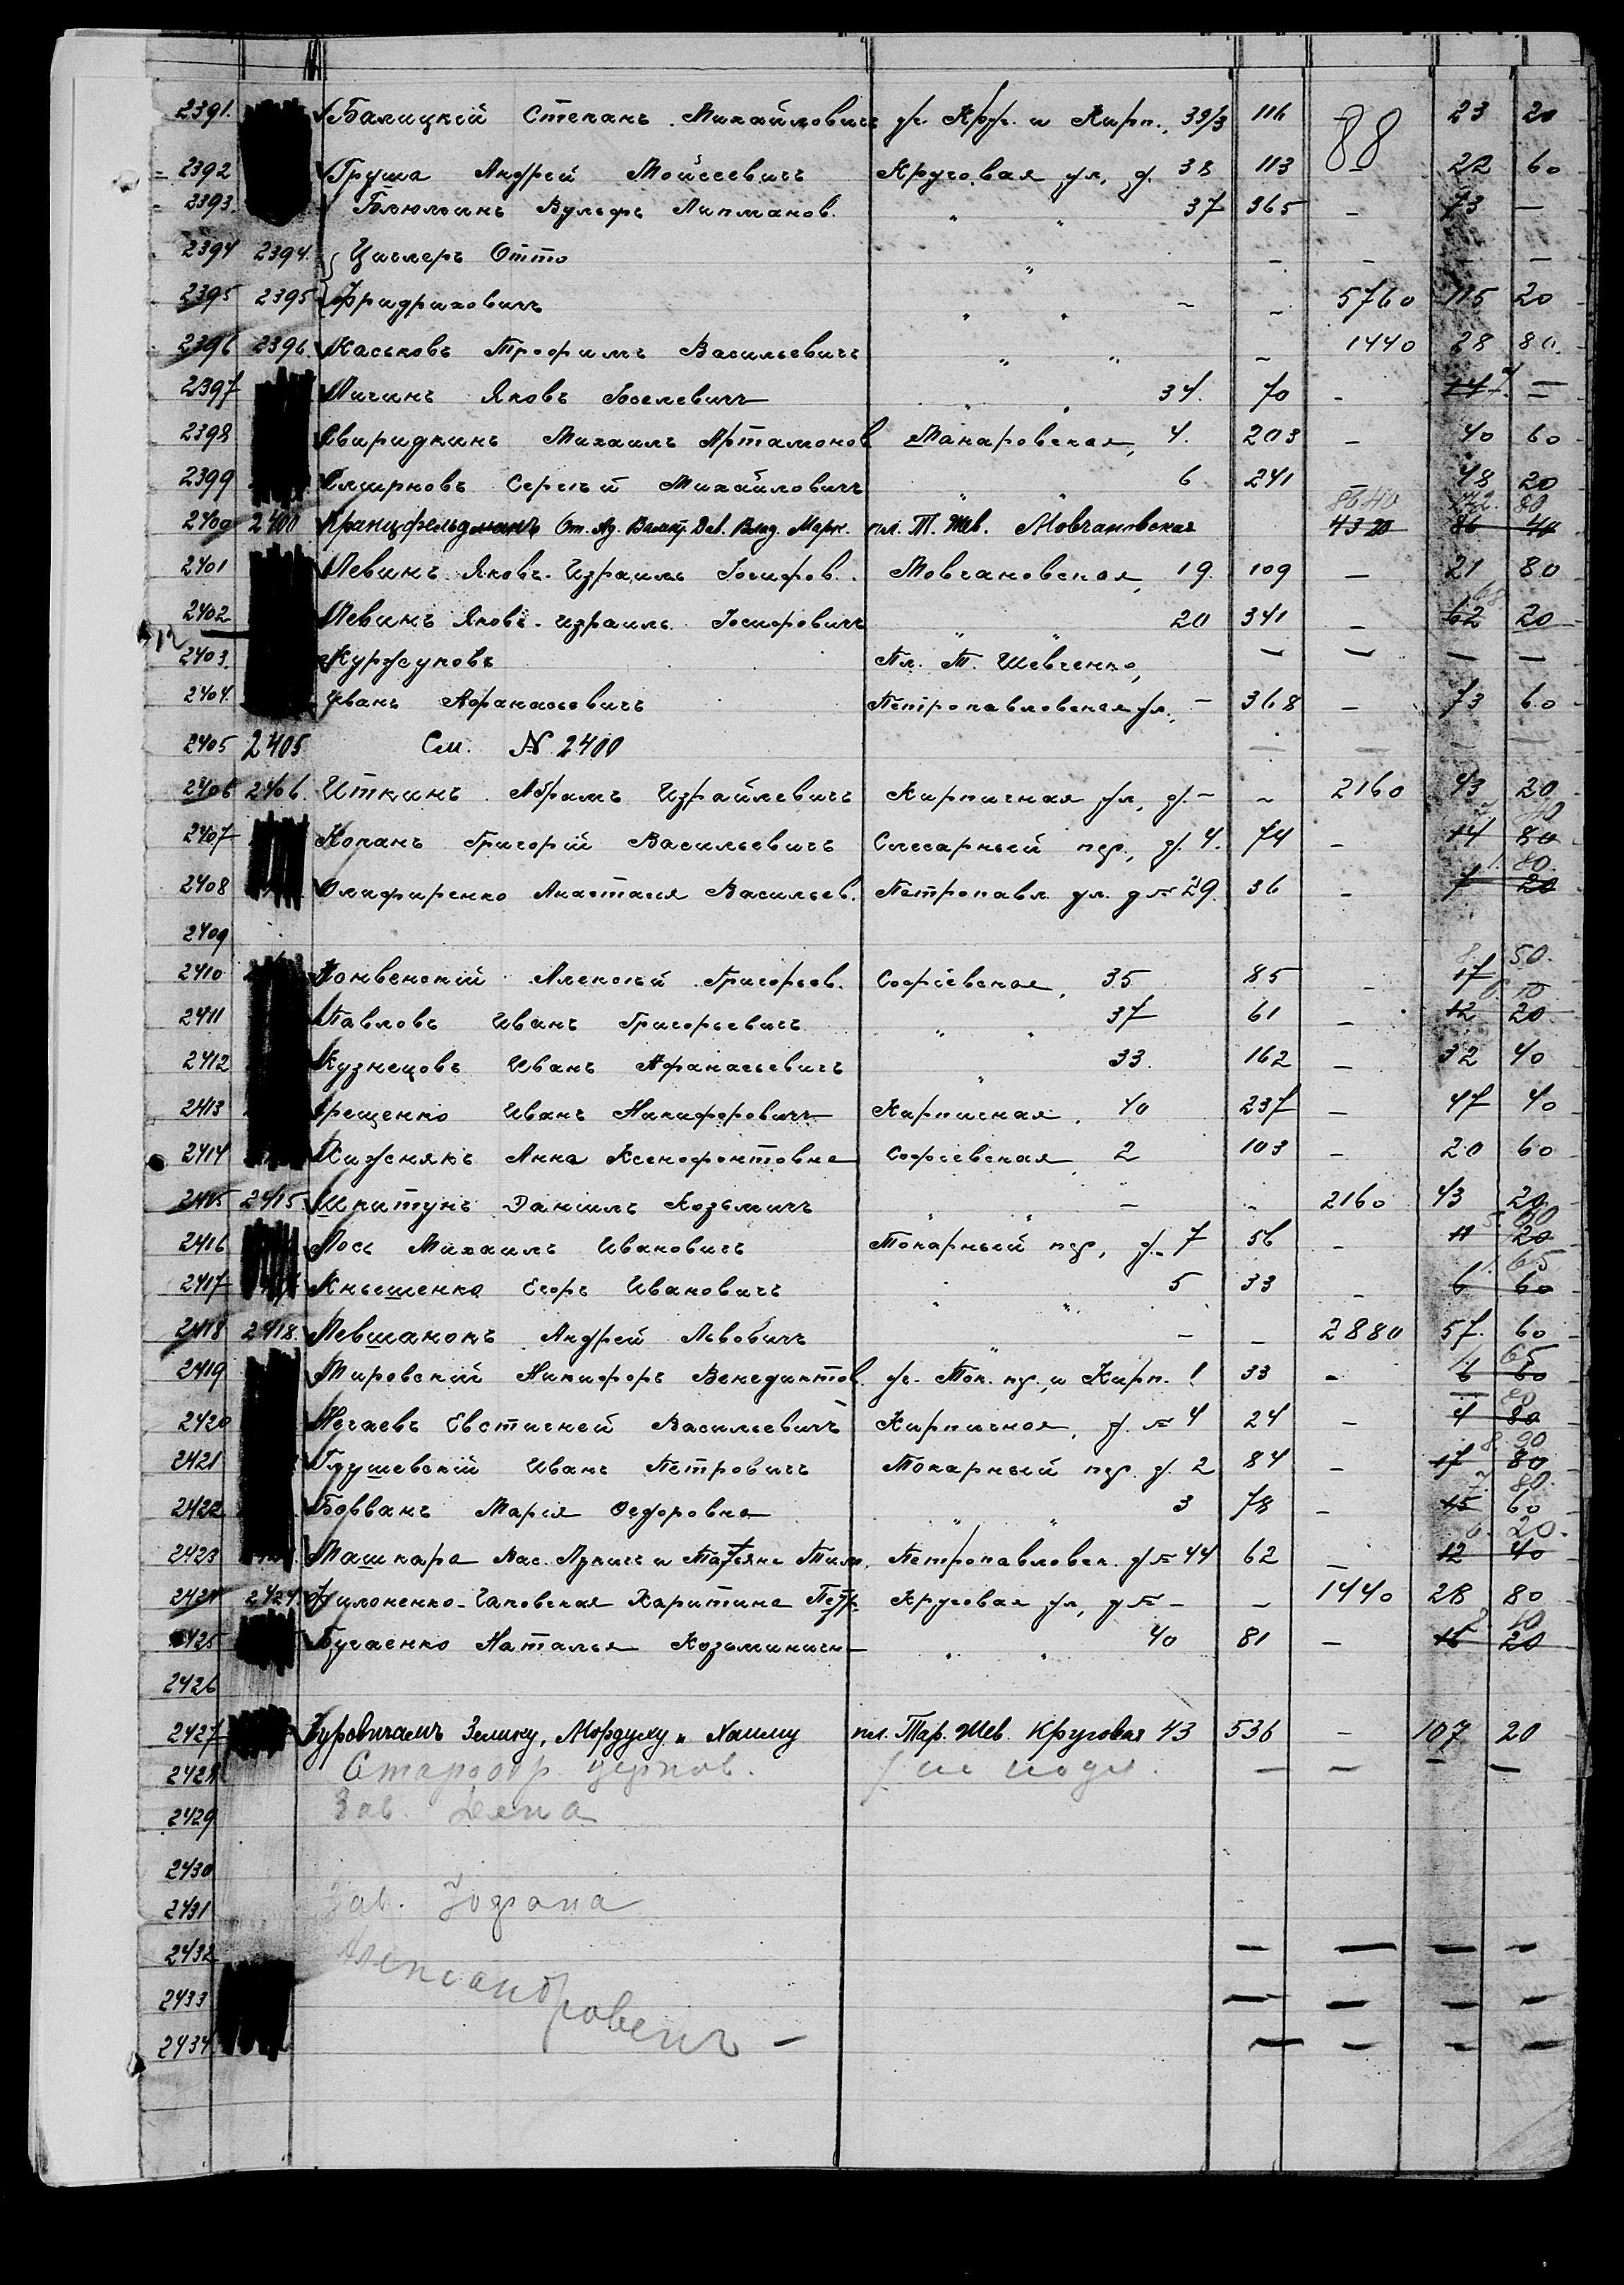 2391. Балицкій Степанъ Михайловичъ уг. Круг. и Кирп., 39/3 116 88 23 20
2392 Груша Андрей Мойсеевичъ Круговая ул, д. 38 113 22 60
2393. Блюминъ Вульфъ Липманов. " " 37 365 - 73 -
2394 2394. Циглеръ Отто " - - - -
2395 2395 Фридриховичъ " " - - 5760 115 20
2396 2396. Каськовъ Трофимъ Васильевичъ " " - 1440 28 80
2397 Яковъ Іоселевичъ " " 34. 70 - 14 -
2398 Свиридкинъ Михаилъ Артамонов Макаровская, 4. 203 - 40 60
2399 Смирновъ Сергѣй Михайловичъ " " 6 241 48 20
8640 172. 80
2400 2400 Кранцфельдманъ От. Аз. Вл. Марк. пл. Т. Шев. Мовчановская 4320 86 40
2401 Левинъ Яковъ-Израиль Іосифов. Мовчановская, 19. 109 - 21 80
68
2402 Левинъ Яковъ-Израиль Іосифовичъ " " 20 341 - 62 20
2403. Журжуковъ Пл. Т. Шевченко, - - - -
2404. Иванъ Афанасьевичъ Петропавловская ул. - 368 - 73 60
2405 2405 См. № 2400 - - - -
2406 2406. Иткинъ Абрамъ Израйлевичъ Кирпичная ул, д. - - 2160 43 20
7 40
2407 Копанъ Григорій Васильевичъ Слесарный пер., д. 4. 74 - 14 80
1. 80.
2408 Олифиренко Анастасія Васильев. Петропавл. ул. д № 29. 36 - 7 20
2409
8. 50.
2410 Конвенскій Алексѣй Григорьев. Софіевская, 35 85 - 17
6 10
2411 Павловъ Иванъ Григорьевичъ " " 37 61 - 12 20
2412 Кузнецовъ Иванъ Афанасьевичъ " 33. 162 - 32 40
2413 Грещенко Иванъ Никифоровичъ Кирпичная, 40 237 - 47 40
2414 Кижнякъ Анна Ксенофонтовна Софіевская, 2 103 - 20 60
2415 2415 Шкитунъ Даніилъ Козьмичъ " " - - 2160 43 20
5. 60
2416 Лось Михаилъ Ивановичъ Токарный пер, д. 7 56 - 11 20
1. 65
2417 Кнышенко Егоръ Ивановичъ " " 5 33 - 6 60
2418 2418. Левшанокъ Андрей Львовичъ " - - 2880 57. 60
1. 65
2419 Мировскій Никифоръ Венедиктов. уг. Ток. пр., и Кирп. 1 33 - 6 60
- 80
2420 Нечаевъ Евстигней Васильевичъ Кирпичная, д. № 4 24 - 4 80
8. 90
2421 Глушевскій Иванъ Петровичъ Токарный пер. д. 2 84 - 17 80
7. 80.
2422 Бовванъ Марія Федоровна " " 3 78 - 15 60
6. 20.
2423 Машкара Вас. Лукичъ и Татьяна Тим. Петропавловск. д № 44 62 - 12 40
2424 2424. Филоненко-Чаповская Харитина Петр. Круговая ул, д № - - 1440 28 80
8 10
2425 Бугаенко Наталья Козьминична " " 40 81 - 16 20
2426
2427 Гуровичамъ Зелику, Мордуху и Хаиму пл. Тар. Шев. Круговая 43 536 - 107 20
2428 Старообр. церков. - - - -
2429 Зав.
2430
2431 Зав.
2432 Александровецъ - - - - -
2433 - - - -
2434 - - - -